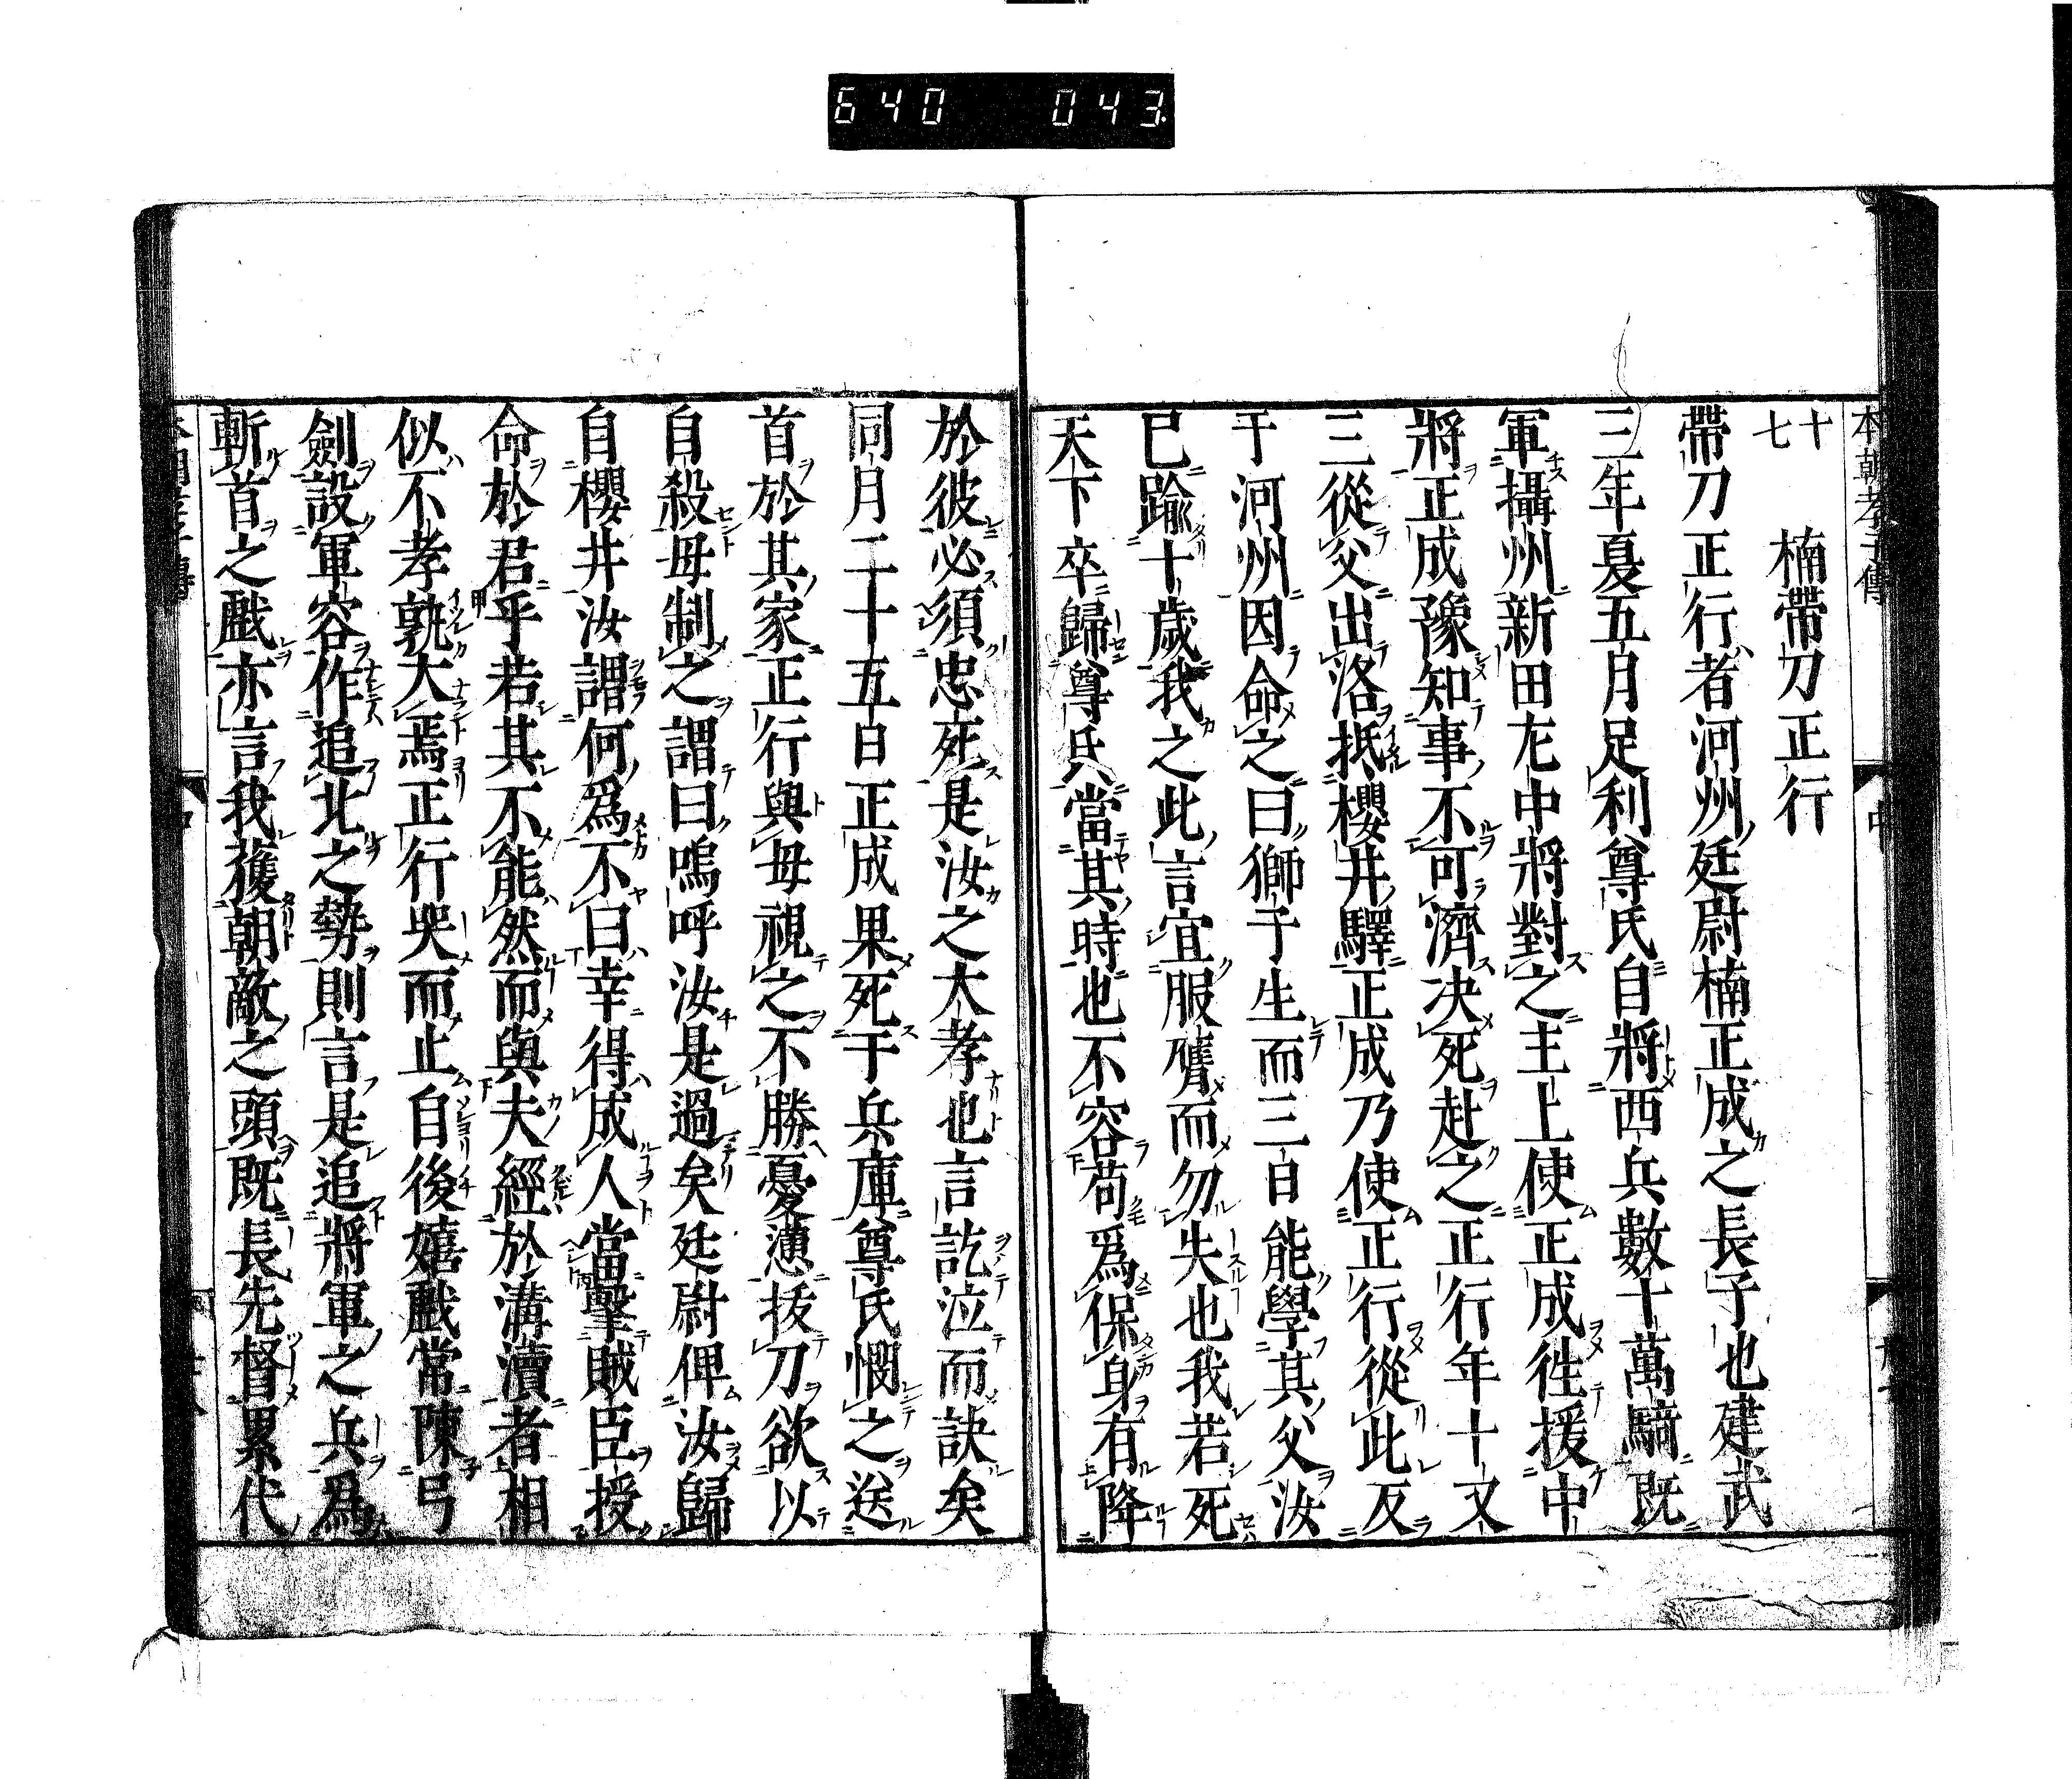 640 043
本朝孝子傳 中
十七 楠帶刀正行
帶刀正行者河州廷尉楠正成之長子也建武
三年夏五月足利尊氏自將西兵數十萬騎既
軍攝州新田左中將對之主上使正成徃援中
將正成豫知事不可濟决死赴之正行年十又
三從父出洛抵櫻井驛正成乃使正行從此反
于河州因命之曰獅子生而三日能學其父汝
已踰十歳我之此言宜服膺而勿失也我若死
天下卒歸尊氏當其時也不容苟爲保身有降
於彼必須忠死是汝之大孝也言訖泣而訣矣
同月二十五日正成果死于兵庫尊氏憫之送
首於其家正行與母視之不勝憂懣拔刀欲以
自殺母制之謂曰嗚呼汝是過矣廷尉俾汝歸
自櫻井汝謂何爲不曰幸得成人當擊賊臣授
命於君乎若其不能然而與夫經於溝瀆者相
似不孝孰大焉正行哭而止自後嬉戯常陳弓
劍設軍容作追北之勢則言是追將軍之兵爲
斬首之戯亦言我獲朝敵之頭既長先督累代